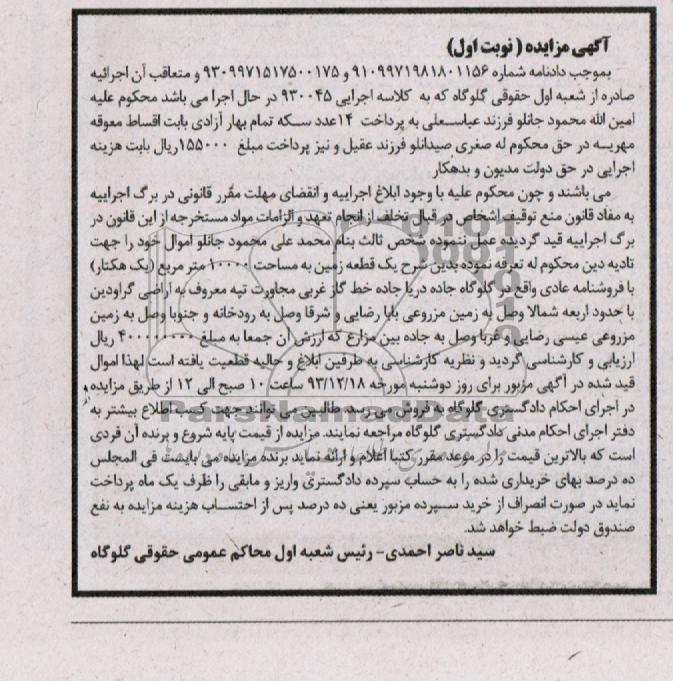 آگهی مزایده ( نوبت اول)
بموجب دادنامه شماره ۹۱۰۹۹۷۱۹۸۱۸۰۱۱۵۶ و ۹۳۰۹۹۷۱۵۱۷۵۰۰۱۷۵ و متعاقب آن اجرائیه
صادره از شعبه اول حقوقی گلوگاه که به کلاسه اجرایی ۹۳۰۰۴۵ در حال اجرا می باشد محکوم علیه
امین الله محمود جانلو فرزند عباسـعلی به پرداخت ۱۴عدد سـکه تمام بهار آزادی بابت اقساط معوقه
مهریـه در حق محکوم له صغری صیدانلو فرزند عقیل و نیز پرداخت مبلغ ۱۵۵۰۰۰ریال بابت هزینه
اجرایی در حق دولت مدیون و بدهکار
می باشند و چون محکوم علیه با وجود ابلاغ اجراییه و انقضای مهلت مقرر قانونی در برگ اجراییه
به مفاد قانون منع توقیف اشخاص در قبال تخلف از انجام تعهد و الزامات مواد مستخرجه از این قانون در
برگ اجراییه قید گردیده عمل ننموده شخص ثالث بنام محمد علی محمود جانلو اموال خود را جهت
تادیه دین محکوم له تعرفه نموده بدین شرح یک قطعه زمین به مساحت ۱۰۰۰۰ متر مربع (یک هکتار)
با فروشنامه عادی واقع در گلوگاه جاده دریا جاده خط گاز غربی مجاورت تپه معروف به اراضی گراودین
با حدود اربعه شمالا وصل به زمین مزروعی بابا رضایی و شرقا وصل به رودخانه و جنوبا وصل به زمین
مزروعی عیسی رضایی و غربا وصل به جاده بین مزارع که ارزش آن جمعا به مبلغ ۴۰۰۰۰۰۰۰۰ ریال
ارزیابی و کارشناسی گردید و نظریه کارشناسی به طرفین ابلاغ و حالیه قطعیت یافته است لهذا اموال
قید شده در آگهی مزبور برای روز دوشنبه مورخه ۹۳/۱۲/۱۸ ساعت ۱۰ صبح الی ۱۲ از طریق مزایده
در اجرای احکام دادگستری گلوگاه به فروش می رسد. طالبین می توانند جهت کسب اطلاع بیشتر به
دفتر اجرای احکام مدنی دادگستری گلوگاه مراجعه نمایند. مزایده از قیمت پایه شروع و برنده آن فردی
است که بالاترین قیمت را در موعد مقرر کتبا اعلام و ارائه نماید برنده مزایده می بایست فی المجلس
ده درصد بهای خریداری شده را به حساب سپرده دادگستری واریز و مابقی را ظرف یک ماه پرداخت
نماید در صورت انصراف از خرید سـپرده مزبور یعنی ده درصد پس از احتسـاب هزینه مزایده به نفع
صندوق دولت ضبط خواهد شد.
سید ناصر احمدی- رئیس شعبه اول محاکم عمومی حقوقی گلوگاه
ParsNamadData